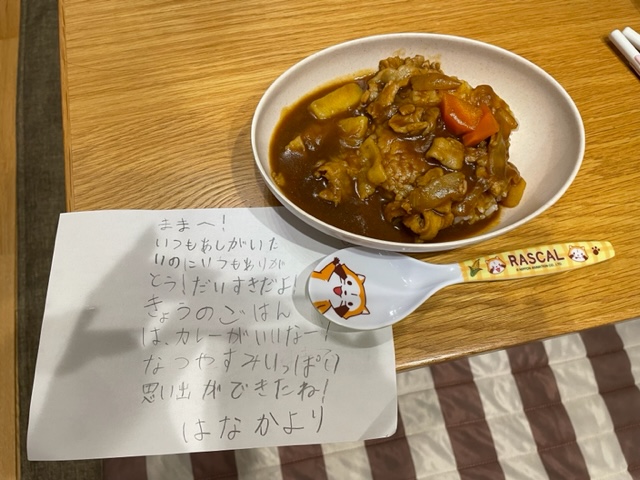 ままへ!
いつもあしがいた
いのにいつもありが
とう!だいすきだよ!
きょうのごはん
は、カレーがいいなー!
なつやすみいっぱい
思い出ができたね!
はなかより
RASCAL